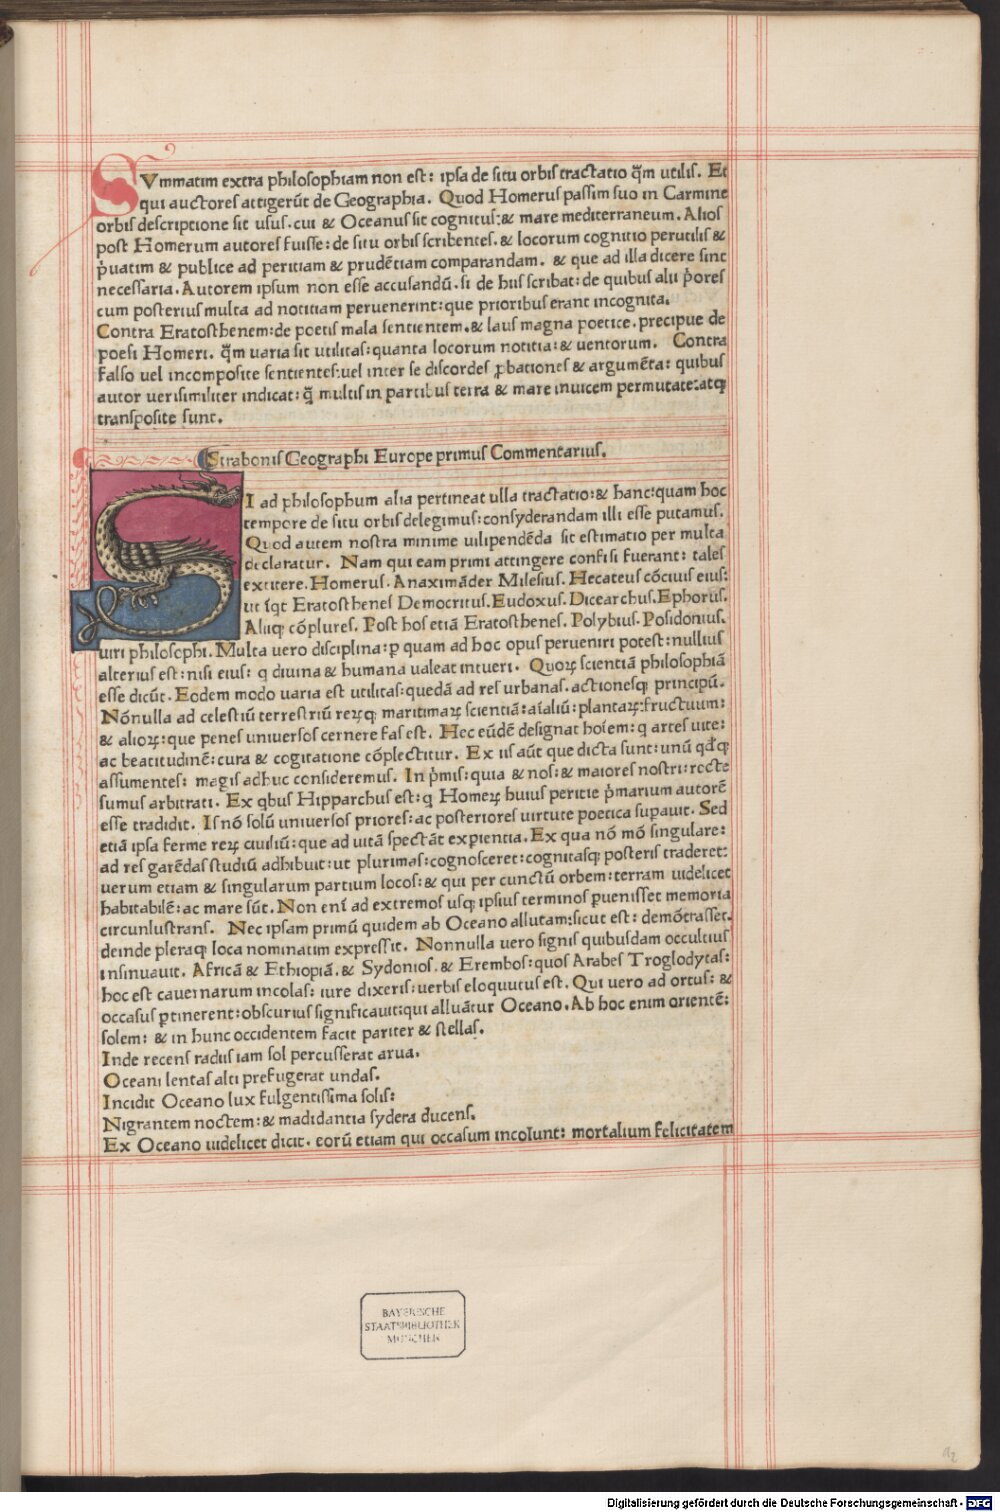 SVmmatim extra philosophiam non est: ipsa de situ orbis tractatio q̄m utilis. Et
qui auctores attigerūt de Geographia. Quod Homerus passim suo in Carmine
orbis descriptione sit usus. cui & Oceanus sit cognitus: & mare mediterraneum. Alios
post Homerum autores fuisse: de situ orbis scribentes. & locorum cognitio perutilis &
p̄uatim & publice ad peritiam & prudētiam comparandam. & que ad illa dicere sint
necessaria. Autorem ipsum non esse accusandū. si de hiis scribat: de quibus alii p̄ores
cum posterius multa ad notitiam peruenerint: que prioribus erant incognita.
Contra Eratosthenem: de poetis mala sentientem. & laus magna poetice. precipue de
poesi Homeri. q̄m uaria sit utilitas: quanta locorum notitia: & uentorum. Contra
falso uel incomposite sentientes: uel inter se discordes ꝓbationes & argumēta: quibus
autor uerisimiliter indicat: q̄ multis in partibus terra & mare inuicem permutate: atqꝫ
transposite sunt.
Strabonis Geographi Europe primus Commentarius.
SI ad philosophum alia pertineat ulla tractatio: & hanc: quam hoc
tempore de situ orbis delegimus: consyderandam illi esse putamus.
Quod autem nostra minime uilipendēda sit estimatio per multa
declaratur. Nam qui eam primi attingere confisi fuerant: tales
extitere. Homerus. Anaximāder Milesius. Hecateus cōciuis eius:
ut īqt Eratosthenes Democritus. Eudoxus. Dicearchus. Ephorus.
Aliiqꝫ cōplures. Post hos etiā Eratosthenes. Polybius. Posidonius.
uiri philosophi. Multa uero disciplina: ꝑ quam ad hoc opus perueniri potest: nullius
alterius est: nisi eius: q diuina & humana ualeat intueri. Quoꝝ scientiā philosophiā
esse dicūt. Eodem modo uaria est utilitas: quedā ad res urbanas. actionesqꝫ principū.
Nōnulla ad celestiū terrestriū reꝝqꝫ maritimaꝝ scientiā: aīaliū: plantaꝝ: fructuum:
& alioꝝ: que penes uniuersos cernere fas est. Hec eūdē designat hoīem: q artes uite:
ac beatitudinē: cura & cogitatione cōplectitur. Ex iis aūt que dicta sunt: unū qdqꝫ
assumentes: magis adhuc consideremus. In p̄mis: quia & nos: & maiores nostri: recte
sumus arbitrati. Ex qbus Hipparchus est: q Homeꝝ huius peritie p̄marium autorē
esse tradidit. Is nō solū uniuersos priores: ac posteriores uirtute poetica supauit. Sed
etiā ipsa ferme reꝝ ciuiliū: que ad uitā spectāt exꝑientia. Ex qua nō mō singulare:
ad res garēdas studiū adhibuit: ut plurimas: cognosceret: cognitasqꝫ posteris traderet:
uerum etiam & singularum partium locos: & qui per cunctū orbem: terram uidelicet
habitabilē: ac mare sūt. Non enī ad extremos usqꝫ ipsius terminos ꝑuenisset memoria
circunlustrans. Nec ipsam primū quidem ab Oceano allutam: sicut est: demōtrasset.
deinde pleraqꝫ loca nominatim expressit. Nonnulla uero signis quibusdam occultius
insinuauit. Africā & Ethiopiā. & Sydonios. & Erembos: quos Arabes Troglodytas:
hoc est cauernarum incolas: iure dixeris: uerbis eloquutus est. Qui uero ad ortus: &
occasus ꝑtinerent: obscurius significauit: qui alluātur Oceano. Ab hoc enim orientē:
solem: & in hunc occidentem facit pariter & stellas.
Inde recens radiis iam sol percusserat arua.
Oceani lentas alti prefugerat undas.
Incidit Oceano lux fulgentissima solis:
Nigrantem noctem: & madidantia sydera ducens.
Ex Oceano uidelicet dicit. eorū etiam qui occasum incolunt: mortalium felicitatem
BAYERISCHE
STAATSBIBLIOTHEK
MÜNCHEN
a2
Digitalisierung gefördert durch die Deutsche Forschungsgemeinschaft - DFG